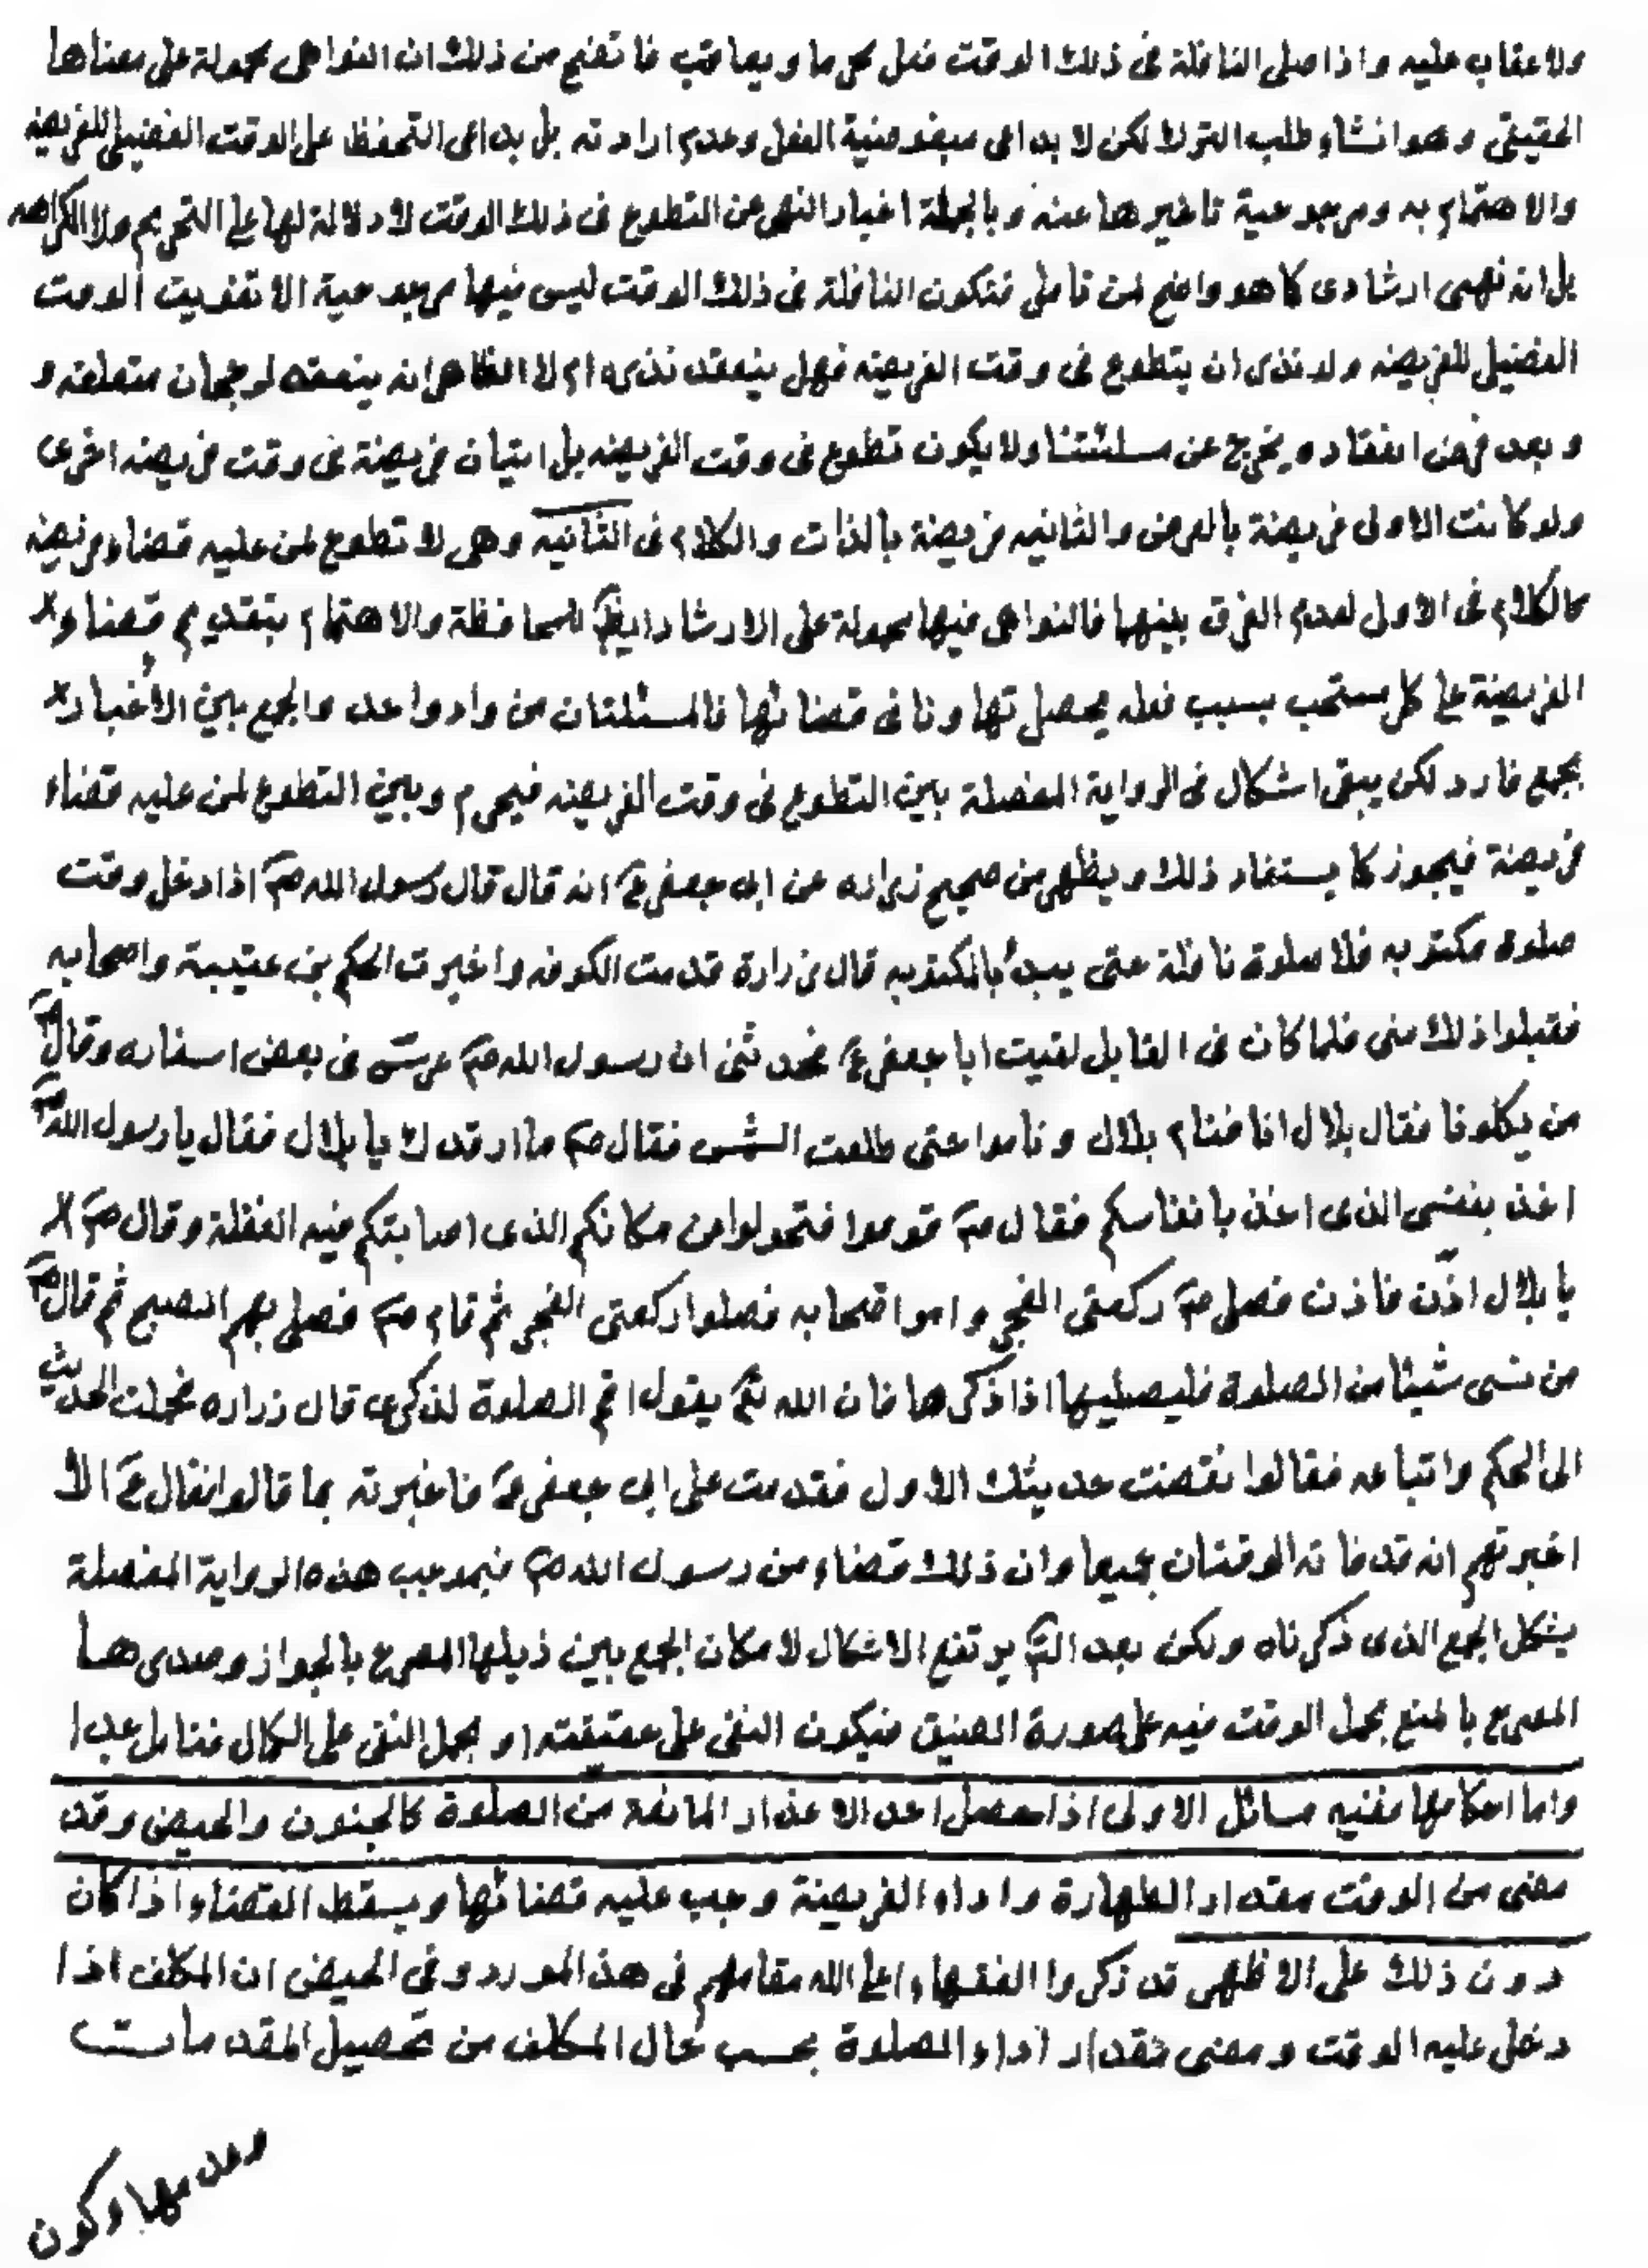 ولا عقاب عليه واذا صلى النافلة فى ذلك الوقت فعل محرما ويعاقب فاتضح من ذلك ان النواهى محمولة على معناها
الحقيقى وهو انشاء طلب الترك لكن لا بداعى مبغوضية الفعل وعدم ارادته بل بداعى التحفظ على الوقت الفضيلى للفريضه
والاهتمام به ومرجوحية تاخيرها عنه وبالجملة اخبار النهى عن التطوع فى ذلك الوقت لا دلالة لها على التحريم ولا الكراهه
بل انه نهى ارشادى كما هو واضح لمن تامل فتكون النافلة فى ذلك الوقت ليس فيها مرجوحية الا تفويت الوقت
الفضيلى للفريضه ولو نذر ان يتطوع فى وقت الفريضه فهل ينعقد نذره ام لا الظاهر انه ينعقد لرجحان متعلقه و
وبعد فرض انعقاده يخرج عن مسئلتنا ولا يكون تطوع فى وقت الفريضه بل اتيان فريضة فى وقت فريضه اخرى
ولو كانت الاولى فريضة بالعرض والثانيه فريضة بالذات والكلام فى الثانيه وهى لا تطوع لمن عليه قضاء فريضه
كالكلام فى الاول لعدم الفرق بينهما فالنواهى فيها محمولة على الارشاد ايضا للمحافظة والاهتمام بتقديم قضاء
الفريضة على كل مستحب بسبب فعله يحصل تهاونا فى قضائها فالمسئلتان من واد واحد والجمع بين الأخبار
بجمع فارد لكن يبقى اشكال فى الرواية المفصلة بين التطوع فى وقت الفريضه فيحرم وبين التطوع لمن عليه قضاء
فريضة فيجوز كما يستفاد ذلك ويظهر من صحيح زراره عن ابى جعفر ع انه قال قال رسول الله ص اذا دخل وقت
صلوة مكتوبه فلا صلوة نافلة حتى يبدأ بالمكتوبه قال زرارة قدمت الكوفه واخبرت الحكم بن عتيبة واصحابه
فقبلوا ذلك منى فلما كان فى القابل لقيت ابا جعفر ع فحدثنى ان رسول الله ص عرس فى بعض اسفاره وقال ص
من يكلونا فقال بلال انا فنام بلال وناموا حتى طلعت الشمس فقال ص ما ارقدك يا بلال فقال يا رسول الله ص
اخذ بنفسى الذى اخذ بانفاسكم فقال ص قوموا فتحولوا من مكانكم الذى اصابتكم فيه الغفلة وقال ص
يا بلال اذّن فاذن فصلى ص ركعتى الفجر وامر اصحابه فصلوا ركعتى الفجر ثم قام ص فصلى بهم الصبح ثم قال ص
من نسى شيئا من الصلوة فليصليها اذا ذكرها فان الله تع يقول اقم الصلوة لذكرى قال زراره فحملت الحديث
الى الحكم واتباعه فقالوا نقضت حديثك الاول فقدمت على ابى جعفر ع فاخبرته بما قالوا فقال ع الا
اخبرتهم انه قد فاته الوقتان جميعا وان ذلك قضاء من رسول الله ص فبموجب هذه الرواية المفصلة
يشكل الجمع الذى ذكرناه ولكن بعد يرتفع الاشكال لامكان الجمع بين ذيلها المصرح بالجواز وصدرها
المصرح بالمنع بحمل الوقت فيه على صورة الضيق فيكون النفى على حقيقته او بحمل النفى على الكمال فتامل جدا
واما احكامها ففيه مسائل الاولى اذا حصل احد الاعذار المانعة من الصلوة كالجنون والحيض وقد
مضى من الوقت مقدار الطهارة واداء الفريضة وجب عليه قضائها ويسقط القضاء اذا كان
دون ذلك على الاظهر قد ذكروا الفقهاء اعلى الله مقامهم فى هذ المورد وفى الحيض ان المكلف اذا
دخل عليه الوقت ومضى مقدار اداء الصلوة بحسب حال المكلف من تحصيل المقدمات